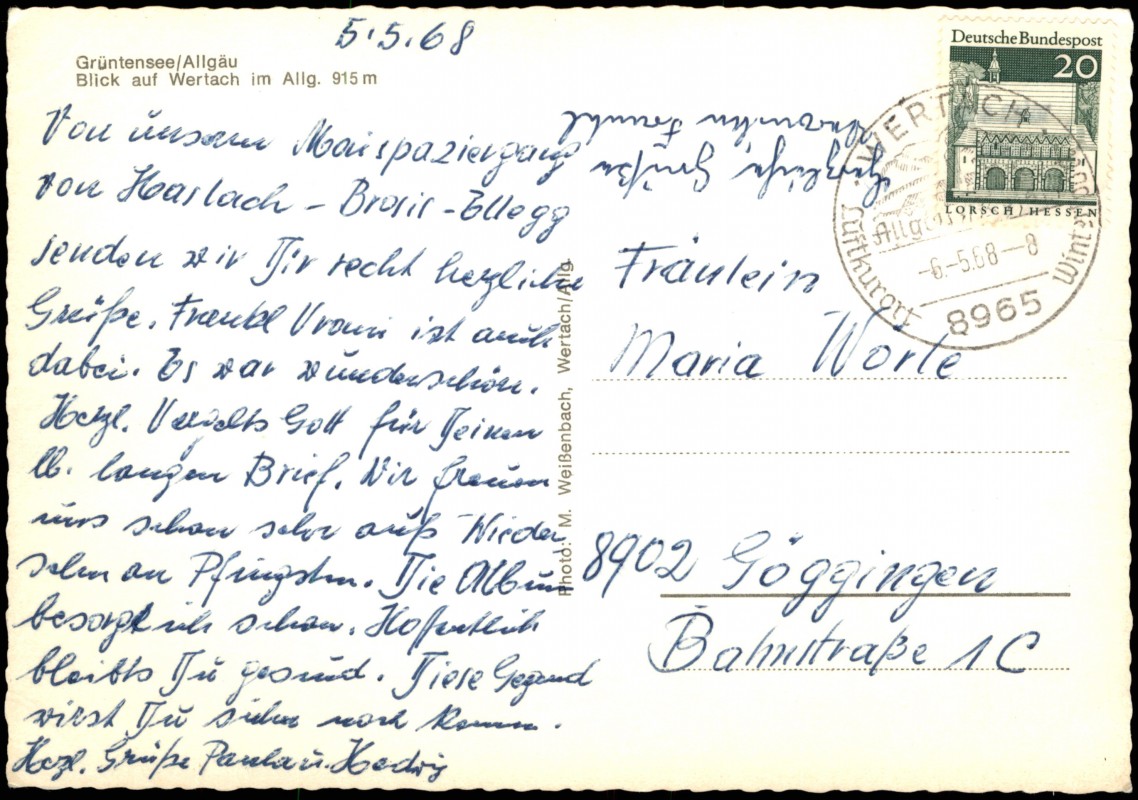 5.5.68
Grüntensee/Allgäu
Blick auf Wertach im Allg. 915 m
Von unserm Maispaziergang
von Haslach - Brosis-Ellegg
senden wir Dir recht herzliche
Grüße. Frankl Vroni ist auch
dabei. Es war wunderschön.
Herzl. Vergelts Gott für Deinen
lb. langen Brief. Wir freuen
uns schon sehr aufs Wieder
sehn an Pfingsten. Die Album
besorgt ich schon. Hoffentlich
bleibts Du gesund. Diese Gegend
wirst Du sicher noch kennen.
Hezl. Grüße Paula u. Hedwig
Herzliche Grüße
Frankl
Photo: M. Weißenbach, Wertach/Allg.
Deutsche Bundespost
20
LORSCH/HESSEN
WERTACH
Luftkurort
-6.-5.68--8
8965
Fräulein
Maria Wörle
8902 Göggingen
Bahnstraße 1C